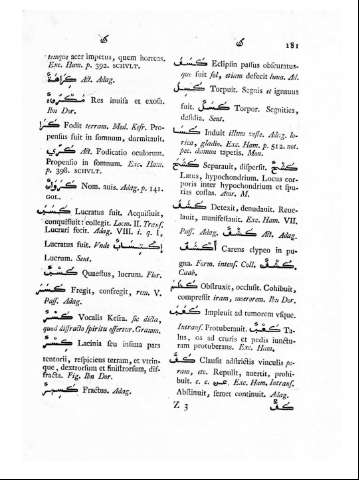 ك ك 181
tempus acer impetus, quem horrens.
Exc. Ham. p. 392. SCHVLT.
كراهة Ast. Adag.
Res invisa et exosa.
Ibn Dor.
كرا Fodit terram. Med. Kesr. Pro-
pensus fuit in somnum, dormitavit.
كري Ast. Foditatio oculorum.
Propensio in somnum. Exc. Ham.
p. 398. SCHVLT.
Nom. auis. Adag. p. 141.
GOL.
كسب Lucratus fuit. Acquisiuit,
conquisiuit: collegit. Locm. II. Trans.
Lucrari fecit. Adag. VIII. i. q. I.
Lucratus fuit. Vnde اكتساب
Lucrum. Sent.
كسب Quaestus, lucrum. Flor.
كسر Fregit, confregit, rem. V.
Pass. Adag.
كسر Vocalis Kesra. sic dicta,
quod diffracto spiritu efferatur. Gramm.
كسر Lacinia seu infima pars
tentorii, respiciens terram, et vtrin-
que, dextrorsum et sinistrorsum, dif-
fracta. Fig. Ibn Dor.
كسير Fractus. Adag.
كسف Eclipsin passus obscuratus-
que fuit sol, etiam defecit luna. Ad.
كسل Torpuit. Segnis et ignauus
fuit. كسل Torpor. Segnities,
desidia. Sent.
كسا Induit illum veste. Adag. lo-
rica, gladio. Exc. Ham. p. 512. not.
pec. domum tapetis. Mon.
كشح Separauit, dispersit. كشح
Latus, hypochondrium. Locus cor-
poris inter hypochondrium et spu-
rias costas. Aeor. M.
كشف Detexit, denudauit. Reue-
lauit, manifestauit. Exc. Ham. VII.
Pass. Adag. كشف Ast. Adag.
اكشف Carens clypeo in pu-
gna. Form. intens. Coll. كشف
Caab.
كظم Obstruxit, occlusit. Cohibuit,
compressit iram, moerorem. Ibn Dor.
كعب Impleuit ad tumorem vsque.
Intrans. Protuberauit. كعب Ta-
lus, os ad cruris et pedis iunctu-
ram protuberans. Exc. Ham.
كف Clausit adstrictis vinculis po-
ram, etc. Repulit, auertit, prohi-
buit. c. c. عن. Exc. Ham. Intrans.
Abstinuit, seruet continuit. Adag.
Z 3 كف